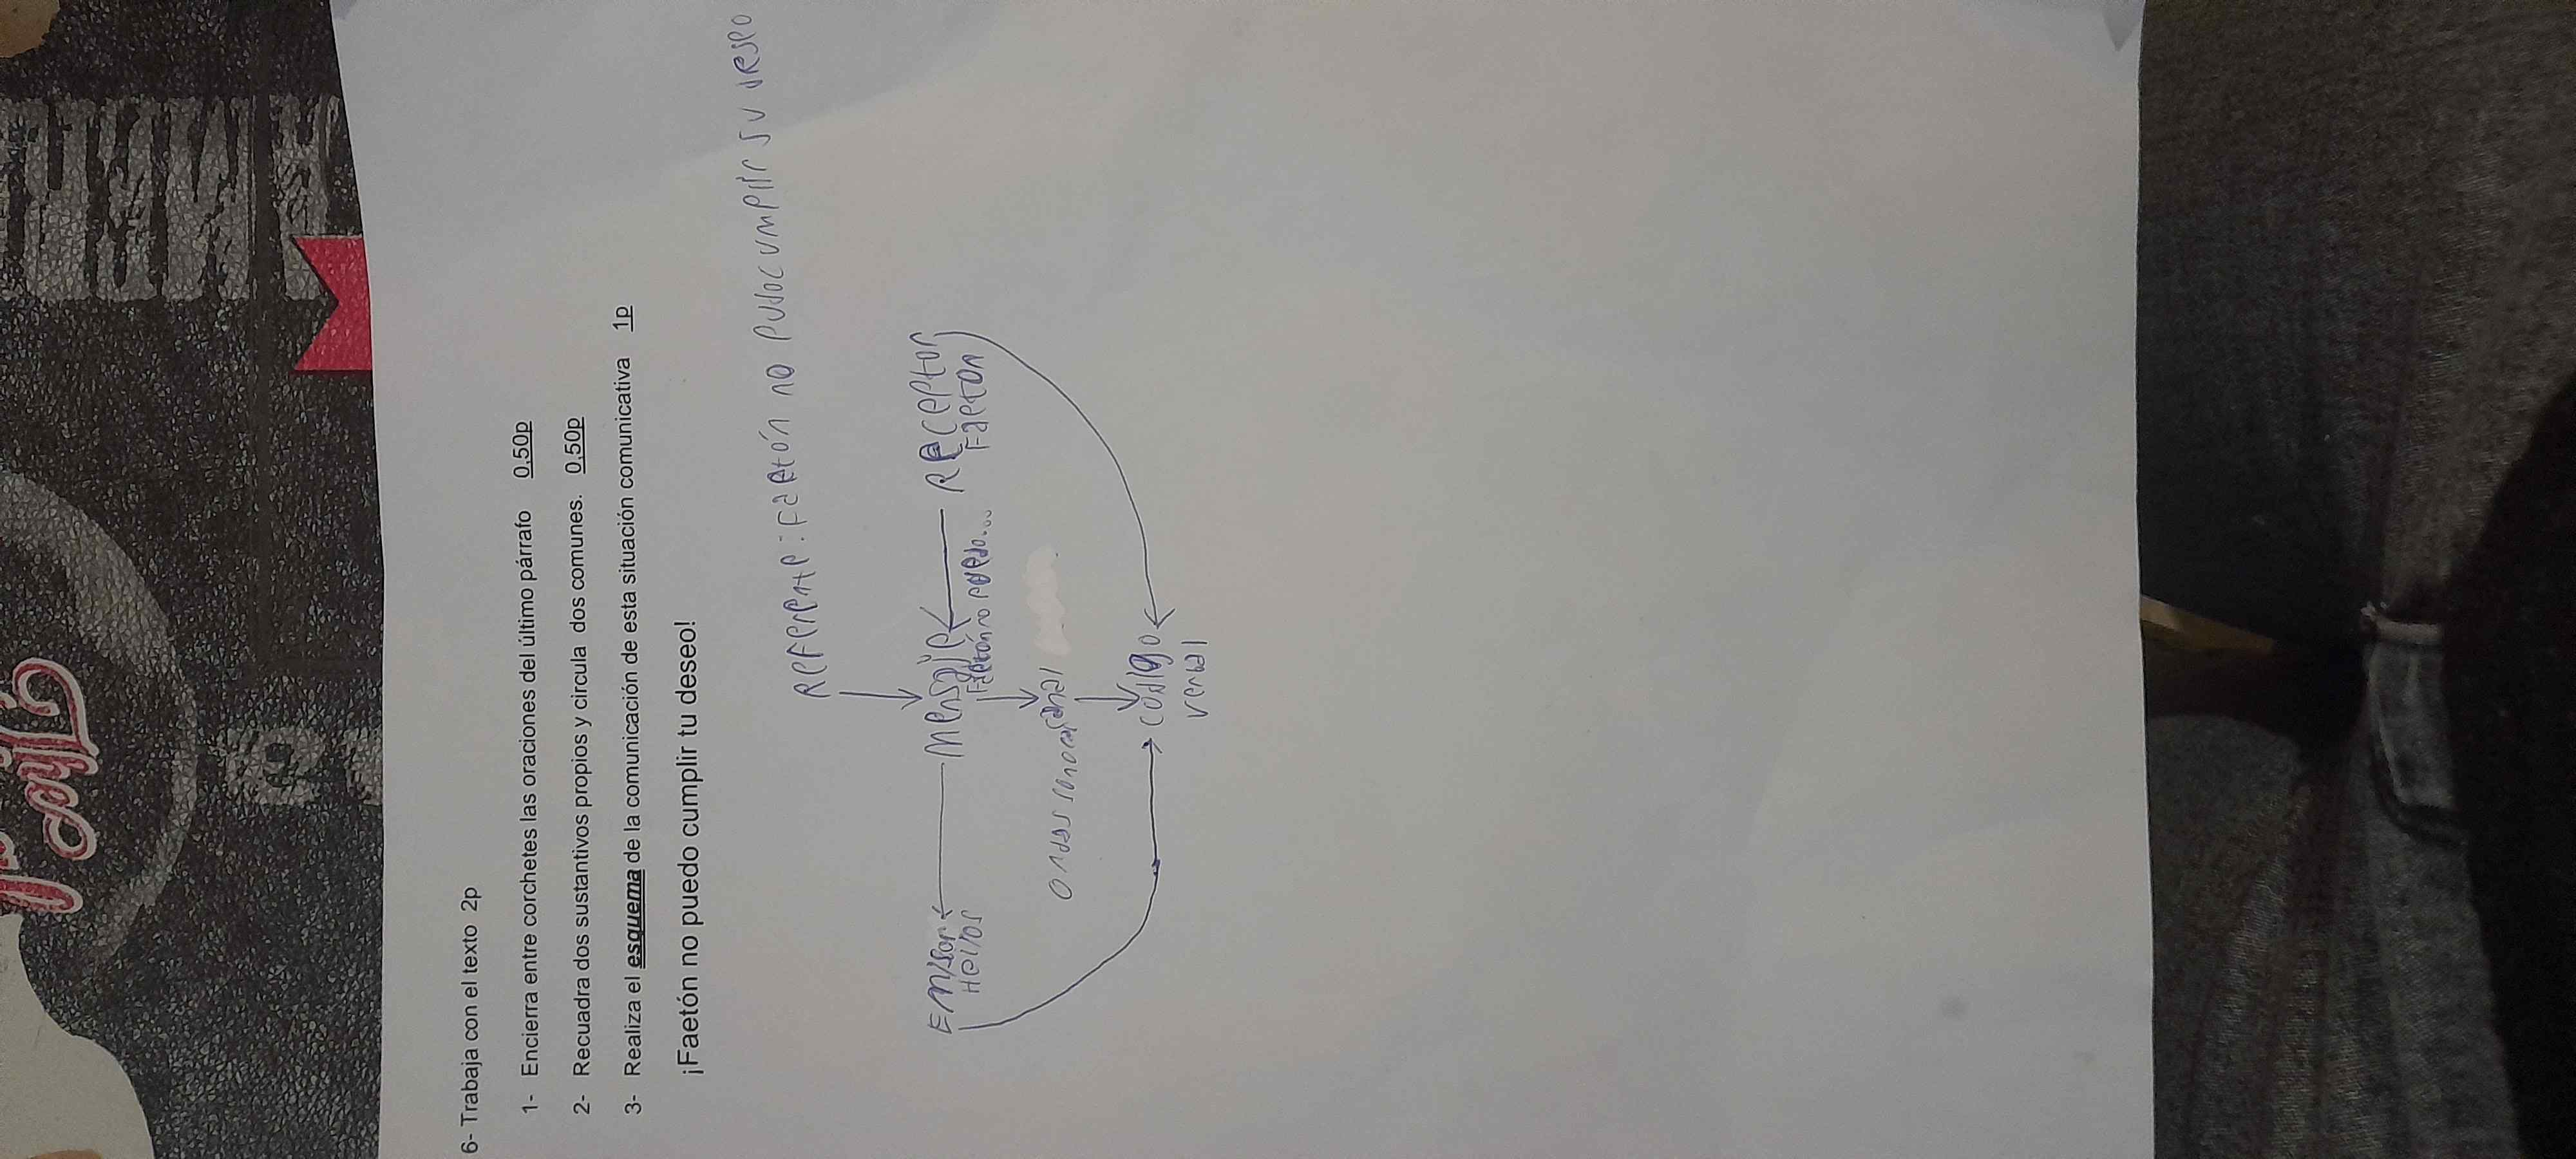 6- Trabaja con el texto 2p
1- Encierra entre corchetes las oraciones del último párrafo 0,50p
2- Recuadra dos sustantivos propios y circula dos comunes. 0,50p
3- Realiza el esquema de la comunicación de esta situación comunicativa 1p
¡Faetón no puedo cumplir tu deseo!
Referente: Faetón no pudo cumplir su deseo
Emisor Mensaje Receptor
Helios Faetón no puedo... Faeton
ondas sonoras canal
codigo
verbal